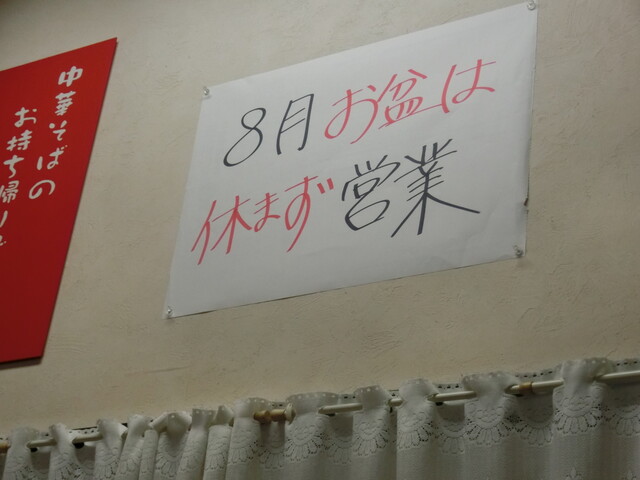 中華そばの
お持ち帰り
8月お盆は
休まず営業